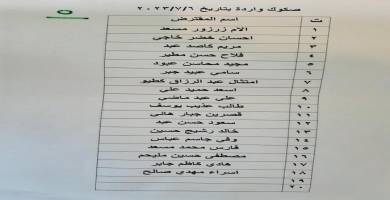 ٥
صكوك واردة بتاريخ ٢٠٢٣/٧/٦
ت اسم المقترض
١ الام زرزور مسعد
٢ احسان خضر خاجي
٣ مريم كاصد عبد
٤ فلاح حسن مطير
٥ مجيد محاسن عبود
٦ سامي عبيد جبر
٧ امتثال عبد الرزاق كطيو
٨ اسعد حميد علي
٩ علي عبد ماضي
١٠ طالب عذيب يوسف
١١ قصرين جبار هاني
١٢ سعود حسن عبد
١٣ خالد رشيج حسين
١٤ وفي جاسم عباس
١٥ فارس محمد مسعد
١٦ مصطفى حسين مليحم
١٧ هادي كاظم جابر
١٨ اسراء مهدي صالح
١٩
٢٠